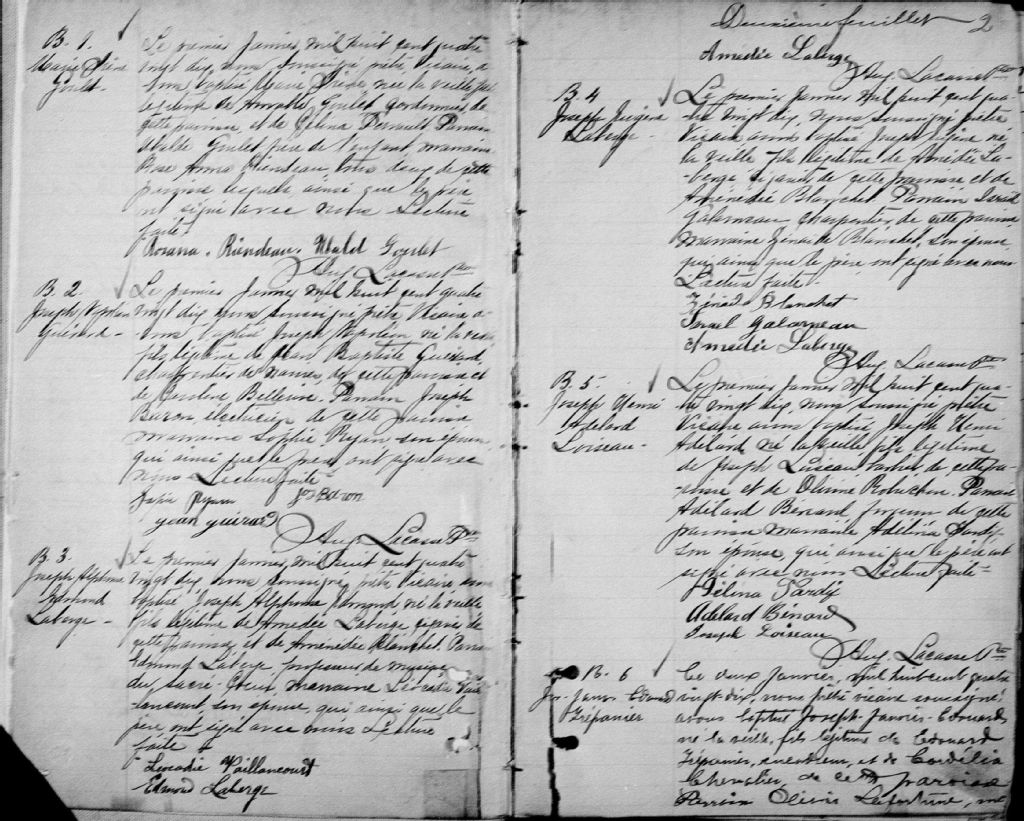 B. 1.
Marie Irène
Goulet.
Le premier Janvier, mil huit cent quatre
vingt dix, nous soussigné prêtre Vicaire, a
vons baptisé Marie Irène, née la veille, fille
légitime de Goulet,
cette paroisse et de Célina Perrault. Parrain
Goulet, frère de l'enfant, marraine
Rose Anna Riendeau, tous deux de cette
paroisse lesquels ainsi que le père
ont signé avec nous Lecture
faite.
Rosanna. Riendeau. Goulet
Aug. Lacasse Ptre
B. 2.
Joseph Napoléon
Guérard.
Le premier Janvier mil huit cent quatre
vingt dix nous soussigné prêtre Vicaire a
vons baptisé Joseph Napoléon né la veille
fils légitime de Jean Baptiste Guérard,
de cette paroisse et
de Bellerive. Parrain Joseph
Baron électricien de cette paroisse
marraine Sophie Ryan son épouse
qui ainsi que le père, ont signé avec
nous Lecture faite
Ryan Jos Baron
jean guérard
Aug. Lacasse Ptre
B. 3.
Joseph Alphonse
Edmond
Laberge.
Le premier Janvier, mil huit cent quatre
vingt dix nous soussigné, prêtre Vicaire avons
baptisé Joseph Alphonse Edmond, né la veille
fils légitime de Amédée Laberge épicier de
cette paroisse, et de Aménédée Blanchet. Parrain
Edmond Laberge professeur de musique
du Sacré-Coeur, marraine Léocadie Vail
lancourt, son épouse, qui ainsi que le
père, ont signé avec nous Lecture
faite
Leocadie Vaillancourt
Edmond Laberge
Deuxième feuillet 2
Amédée Laberge
Aug. Lacasse Ptre
B. 4
Joseph Eugène
Laberge.
Le premier Janvier Mil huit cent qua-
tre vingt dix, nous soussigné prêtre
Vicaire avons baptisé Joseph Eugène né
la veille fils légitime de Amédée La-
berge épicier de cette paroisse et de
Aménédée Blanchet Parrain Israël
Galarneau charpentier de cette paroisse
marraine Zénaïde Blanchet, son épouse,
qui ainsi que le père ont signé avec nous
Lecture faite.
Zénaïde Blanchet
Israel Galarneau
Amédée Laberge
Aug. Lacasse Ptre
B. 5.
Joseph Henri
Adélard
Loiseau.
Le premier Janvier Mil huit cent qua-
tre vingt dix, nous soussigné prêtre
Vicaire avons baptisé Joseph Henri
Adélard né la veille fils légitime
de Joseph Loiseau de cette pa-
roisse et de Olivine Robuchon. Parrain
Adélard Bénard forgeron de cette
paroisse marraine Adélina Hardy
son épouse, qui ainsi que le père ont
signé avec nous Lecture faite
Délina Hardy
Adelard Bénard
Joseph Loiseau
Aug. Lacasse Ptre
B. 6
Jos. Janv. Edouard
Trépanier
Le deux Janvier, mil huit cent quatre
vingt dix, nous prêtre vicaire soussigné
avons baptisé Joseph-Janvier-Edouard,
né la veille, fils légitime de Edouard
Trépanier, et de Cordélia
Chevalier, de cette paroisse
Parrain Olivier Lafortune, ma